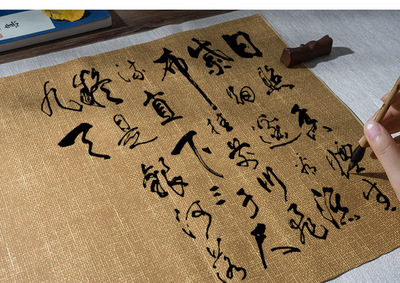 日照香爐生
紫烟遥看瀑
布挂前川飛
流直下三千尺
疑是銀河落
九天